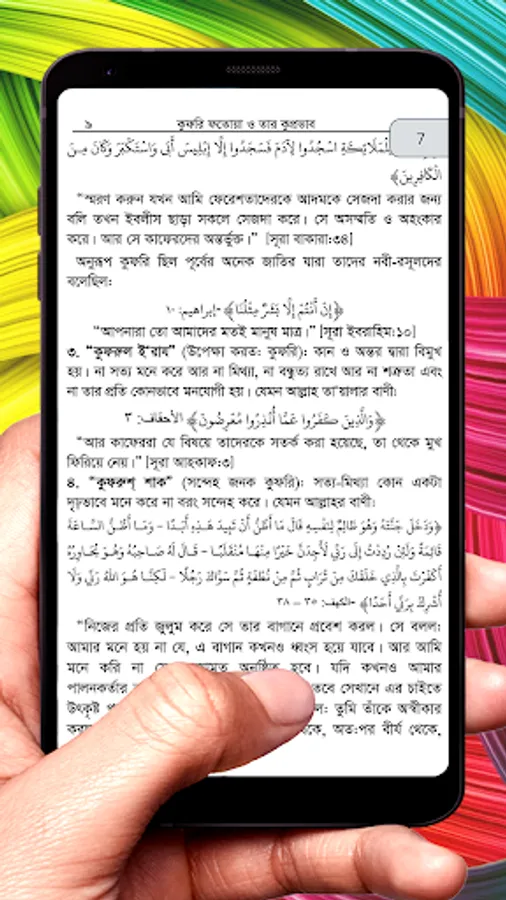 ৯ কুফরি ফতোয়া ও তার কুপ্রভাব
7
لْمَلَائِكَةِ اسْجُدُوا لِآدَمَ فَسَجَدُوا إِلَّا إِبْلِيسَ أَبَى وَاسْتَكْبَرَ وَكَانَ مِنَ
الْكَافِرِينَ﴾
“স্মরণ করুন যখন আমি ফেরেশতাদেরকে আদমকে সেজদা করার জন্য
বলি তখন ইবলীস ছাড়া সকলে সেজদা করে। সে অসম্মতি ও অহংকার
করে। আর সে কাফেরদের অন্তর্ভুক্ত।” [সূরা বাকারা:৩৪]
অনুরূপ কুফরি ছিল পূর্বের অনেক জাতির যারা তাদের নবী-রসূলদের
বলেছিল:
﴿إِنْ أَنْتُمْ إِلَّا بَشَرٌ مِثْلُنَا﴾ -إبراهيم: ١٠
“আপনারা তো আমাদের মতই মানুষ মাত্র।” [সূরা ইবরাহিম:১০]
৩. “কুফরুল ই‘রায” (উপেক্ষা করত: কুফরি): কান ও অন্তর দ্বারা বিমুখ
হয়। না সত্য মনে করে আর না মিথ্যা, না বন্ধুত্য রাখে আর না শত্রুতা এবং
না তার প্রতি কোনভাবে মনযোগী হয়। যেমন আল্লাহ তা‘য়ালার বাণী:
﴿وَالَّذِينَ كَفَرُوا عَمَّا أُنْذِرُوا مُعْرِضُونَ﴾ الأحقاف: ٣
“আর কাফেররা যে বিষয়ে তাদেরকে সতর্ক করা হয়েছে, তা থেকে মুখ
ফিরিয়ে নেয়।” [সূরা আহকাফ:৩]
৪. “কুফরুশ্ শাক” (সন্দেহ জনক কুফরি): সত্য-মিথ্যা কোন একটা
দৃঢ়ভাবে মনে করে না বরং সন্দেহ করে। যেমন আল্লাহর বাণী:
﴿وَدَخَلَ جَنَّتَهُ وَهُوَ ظَالِمٌ لِنَفْسِهِ قَالَ مَا أَظُنُّ أَنْ تَبِيدَ هَذِهِ أَبَدًا - وَمَا أَظُنُّ السَّاعَةَ
قَائِمَةً وَلَئِنْ رُدِدْتُ إِلَى رَبِّي لَأَجِدَنَّ خَيْرًا مِنْهَا مُنْقَلَبًا - قَالَ لَهُ صَاحِبُهُ وَهُوَ يُحَاوِرُهُ
أَكَفَرْتَ بِالَّذِي خَلَقَكَ مِنْ تُرَابٍ ثُمَّ مِنْ نُطْفَةٍ ثُمَّ سَوَّاكَ رَجُلًا - لَكِنَّا هُوَ اللَّهُ رَبِّي وَلَا
أُشْرِكُ بِرَبِّي أَحَدًا﴾ -الكهف: ٣٥ – ٣٨
“নিজের প্রতি জুলুম করে সে তার বাগানে প্রবেশ করল। সে বলল:
আমার মনে হয় না যে, এ বাগান কখনও ধ্বংস হয়ে যাবে। আর আমি
মনে করি না অনুষ্ঠিত হবে। যদি কখনও আমার
পালনকর্তার তবে সেখানে এর চাইতে
উৎকৃষ্ট তুমি তাঁকে অস্বীকার
অত:পর বীর্য থেকে,